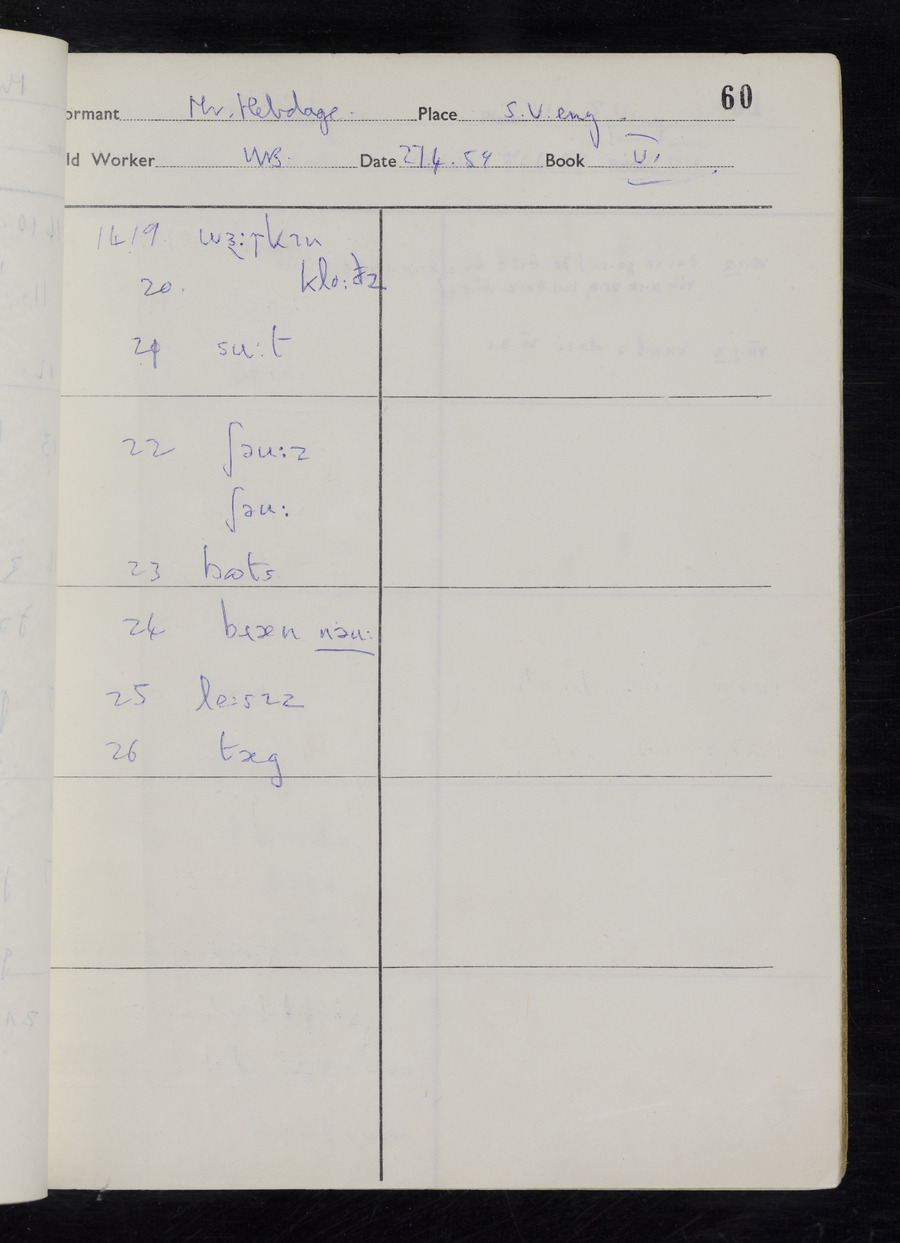 60
ormant Mr. Hebdage. Place S.V.eng.
ld Worker WB. Date 27.4.59 Book VI
14 19 wɜ:ɼkɪn
20. klɒ:ðz
21 su:t
22 ʃəu:z
ʃəu:
23 bəots
24 bɪæn nəu:
25 le:sɪz
26 tæg